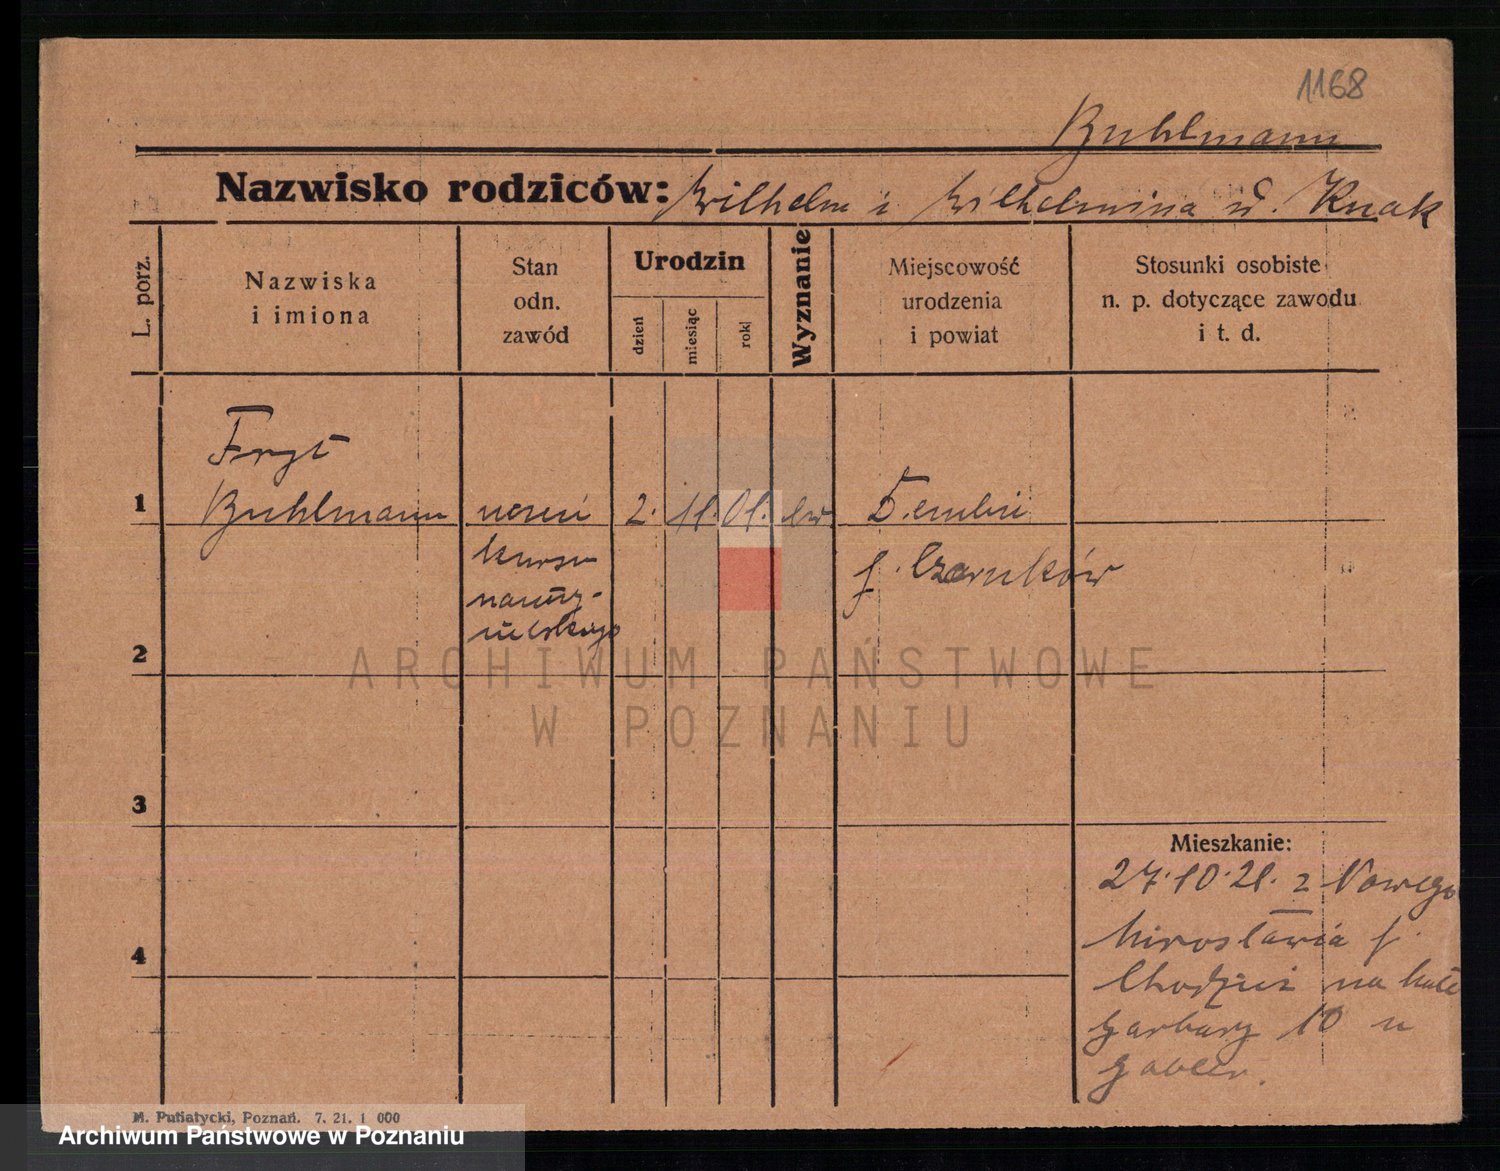 1168
Buhlmann
Nazwisko rodziców: Wilhelm i Wilhelmina u. Knak
L. porz.
Nazwiska
i imiona
Stan
odn.
zawód
Urodzin
dzień
miesiąc
rok
Wyznanie
Miejscowość
urodzenia
i powiat
Stosunki osobiste
n. p. dotyczące zawodu
i t. d.
Fryt
1 Buhlmann uczeń 2. 11. 01. ew
kursu
p. Czarnków
2
ARCHIWUM PAŃSTWOWE
W POZNANIU
3
Mieszkanie:
27.10.21. z Nowego
Mirosławia p.
4
Chodzież na
Garbary 10 u
M. Putiatycki, Poznań. 7. 21. 1 000
Archiwum Państwowe w Poznaniu